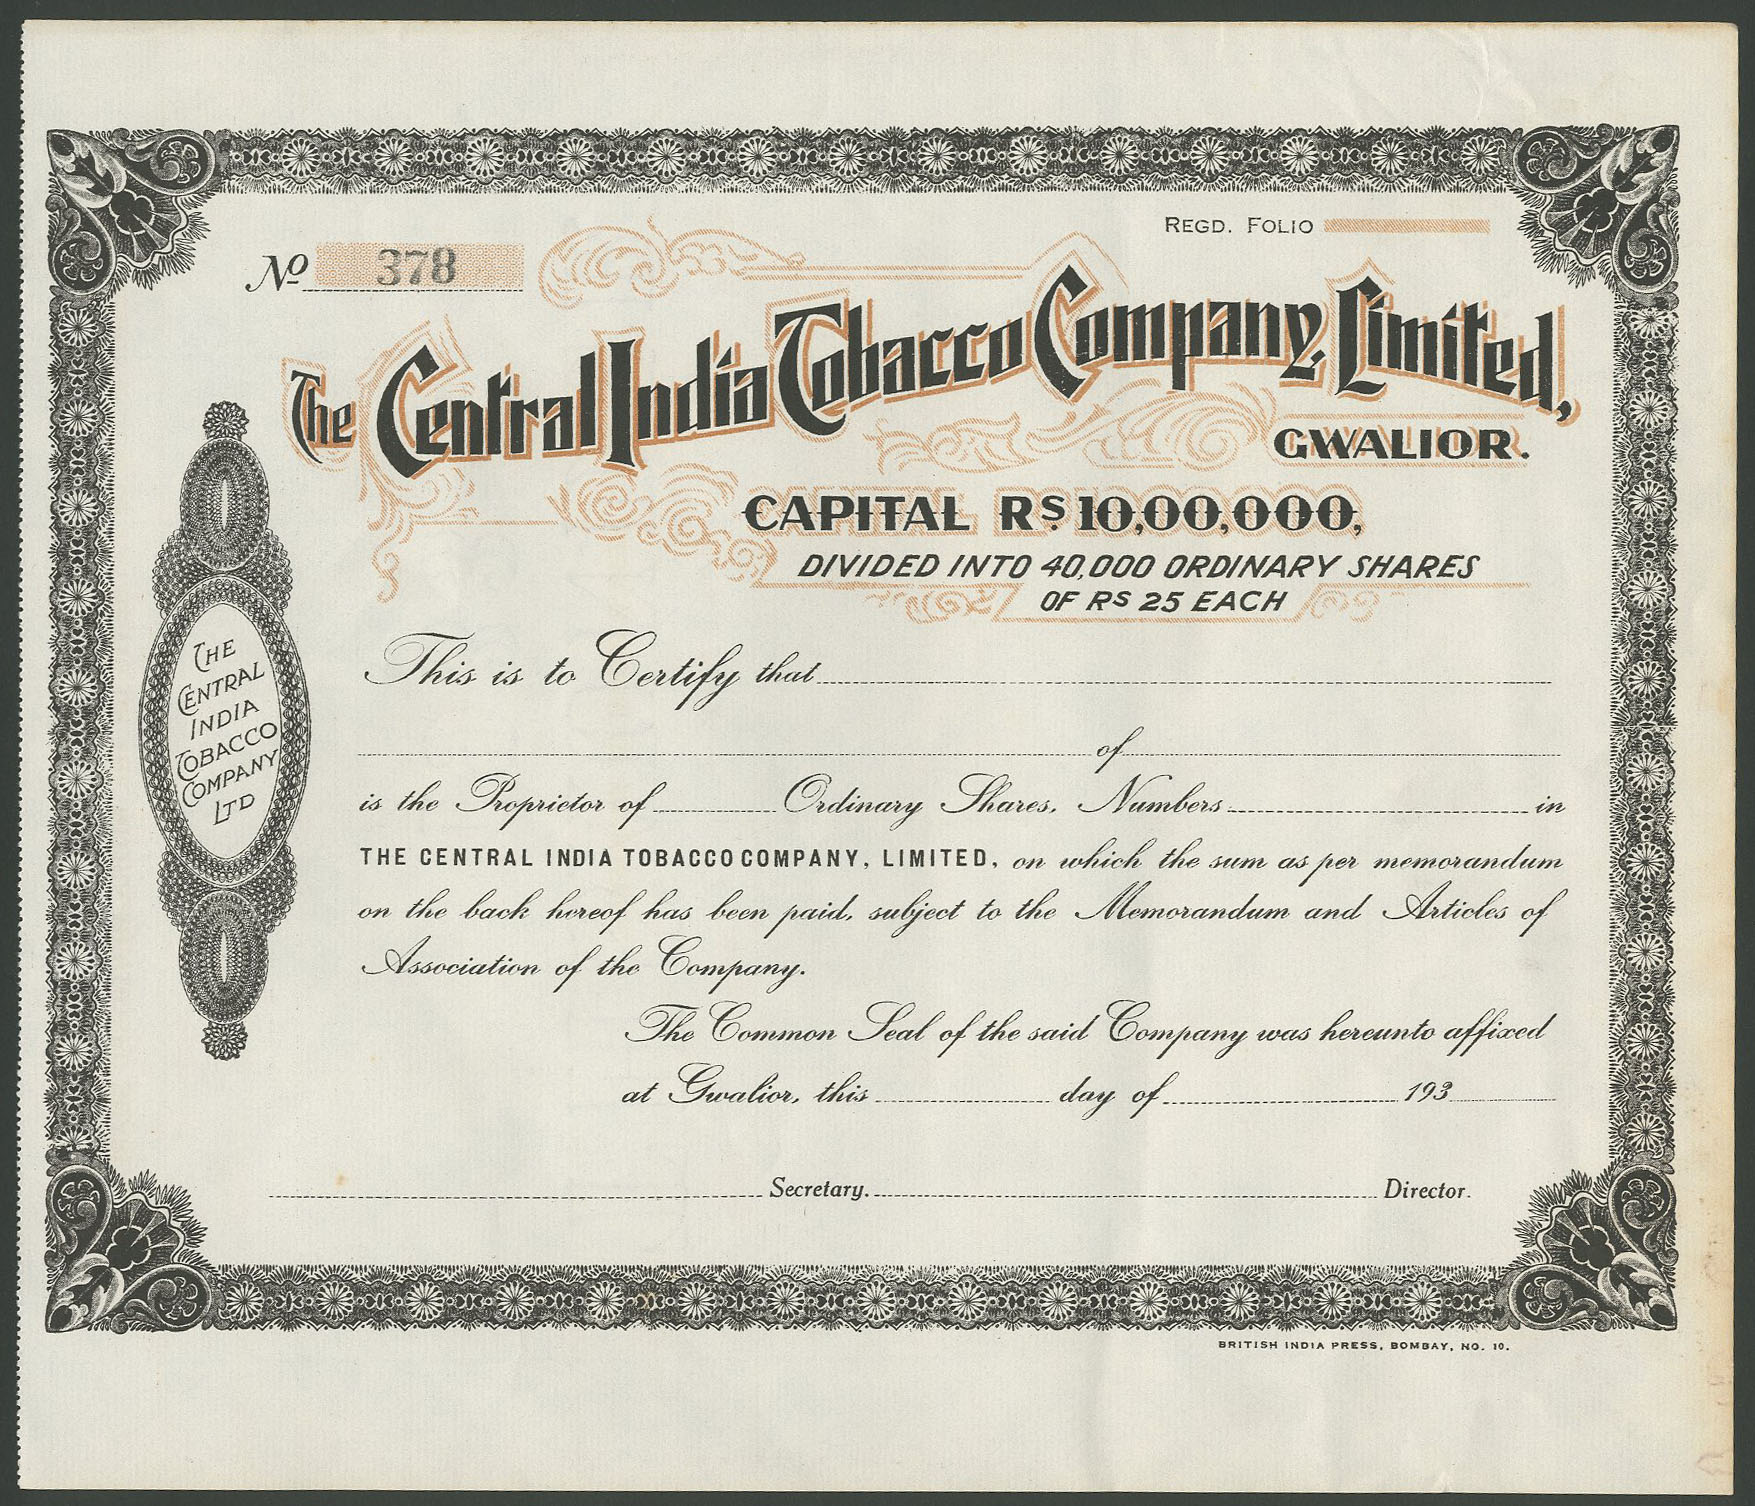 REGD. FOLIO
No 378
The Central India Tobacco Company, Limited,
GWALIOR.
CAPITAL RS. 10,00,000,
DIVIDED INTO 40,000 ORDINARY SHARES
OF RS 25 EACH
THE
CENTRAL
INDIA
TOBACCO
COMPANY
LTD
This is to Certify that
of
is the Proprietor of Ordinary Shares, Numbers in
THE CENTRAL INDIA TOBACCO COMPANY, LIMITED, on which the sum as per memorandum
on the back hereof has been paid, subject to the Memorandum and Articles of
Association of the Company.
The Common Seal of the said Company was hereunto affixed
at Gwalior, this day of 193
Secretary. Director.
BRITISH INDIA PRESS, BOMBAY, NO. 10.